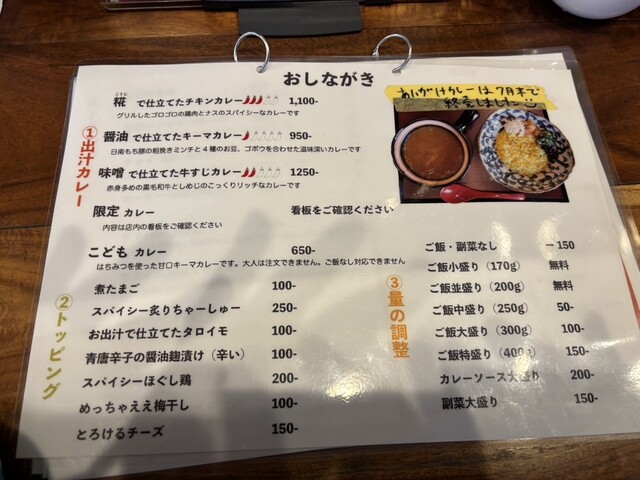 おしながき
①出汁カレー
こうじ
糀 で仕立てたチキンカレー 1,100-
グリルしたゴロゴロの鶏肉とナスのスパイシーなカレーです
醤油 で仕立てたキーマカレー 950-
日南もち豚の粗挽きミンチと4種のお豆、ゴボウを合わせた滋味深いカレーです
味噌 で仕立てた牛すじカレー 1250-
赤身多めの黒毛和牛としめじのこっくりリッチなカレーです
限定 カレー 看板をご確認ください
内容は店内の看板をご確認ください
こども カレー 650-
はちみつを使った甘口キーマカレーです。大人は注文できません。ご飯なし対応できません
あいがけカレーは7月末で
終了しました
②トッピング
煮たまご 100-
スパイシー炙りちゃーしゅー 250-
お出汁で仕立てたタロイモ 100-
青唐辛子の醤油麹漬け（辛い） 100-
スパイシーほぐし鶏 200-
めっちゃええ梅干し 100-
とろけるチーズ 150-
③量の調整
ご飯・副菜なし －150
ご飯小盛り（170g） 無料
ご飯並盛り（200g） 無料
ご飯中盛り（250g） 50-
ご飯大盛り（300g） 100-
ご飯特盛り（400g） 150-
カレーソース大盛り 200-
副菜大盛り 150-